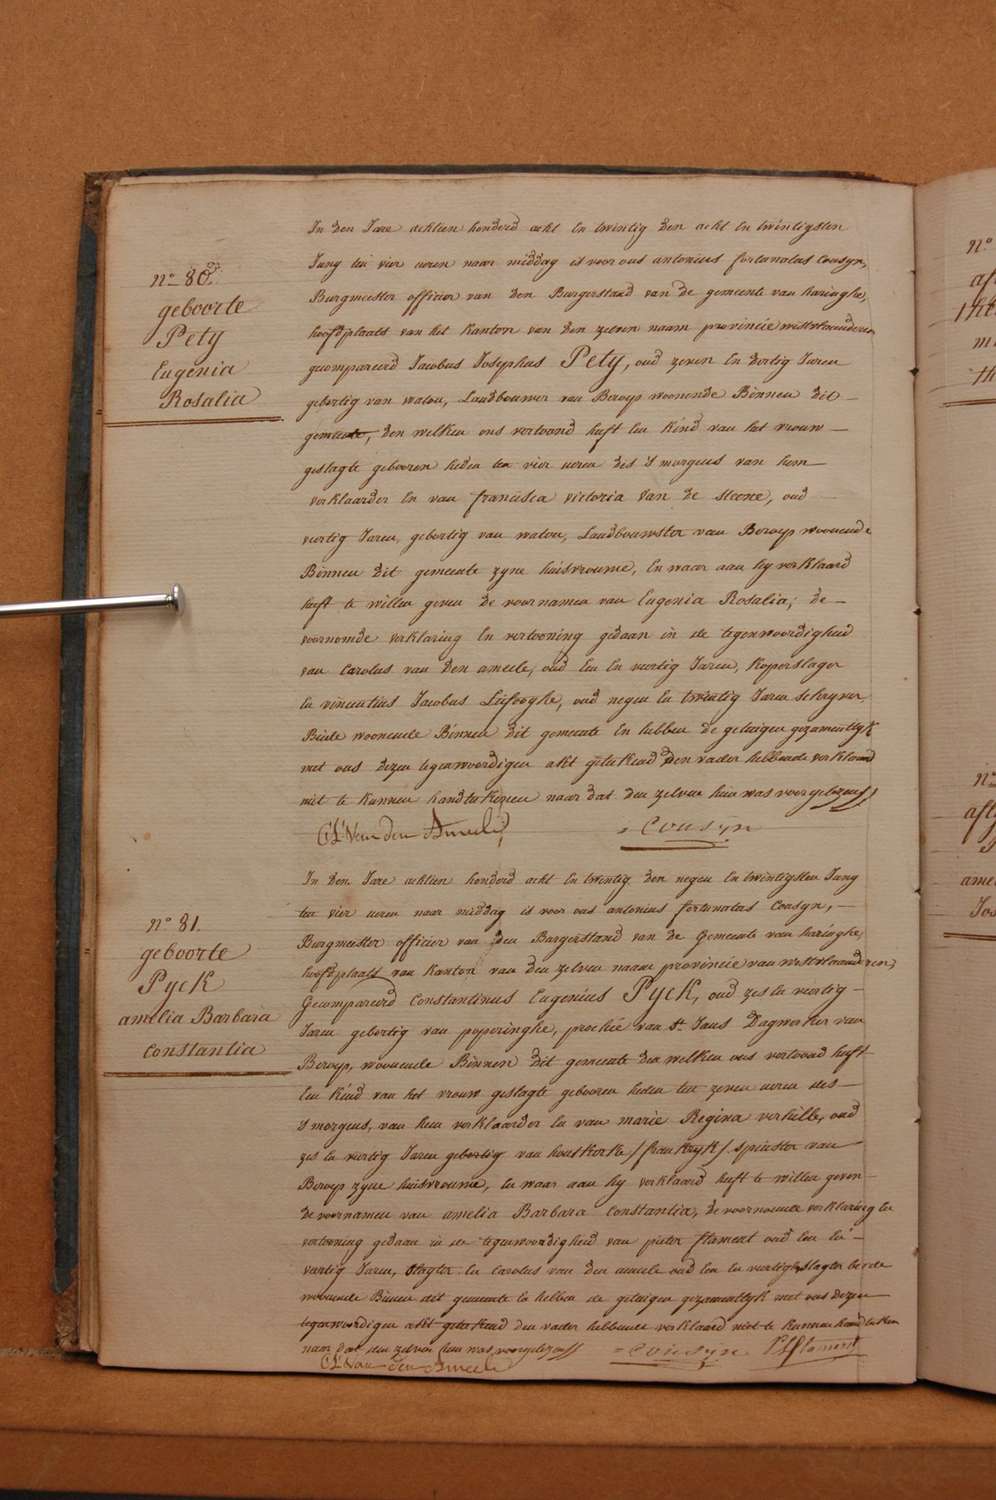 nº 80.
geboorte
Pety
Eugenia
Rosalia
In den Jare achtien honderd acht En twintig den acht En twintigsten
Juny ten vier ueren naar middag is voor ons antonius fortunatus Cousyn,
Burgmeester officier van den Burgerstand van de gemeente van haringhe,
hoofdplaats van het kanton van den zelven naam provincie westvlaenderen
gecompareerd Jacobus Josephus Pety, oud zeven En dertig Jaren
gebortig van watou, Landbouwer van Beroep woonende Binnen dit
gemeente, den welken ons vertoond heeft Een kind van het vrouw
geslagte gebooren heden ten vier ueren des 's morgens van hem
verklaarder En van francisca victoria van de steene, oud
viertig Jaren, gebortig van watou, Landbouwster van Beroep woonende
Binnen dit gemeente zyne huisvrouwe, En waar aan hy verklaard
heeft te willen geven de voornamen van Eugenia Rosalia; de
voornomde verklaring En vertooning gedaan in de tegenwoordigheid
van Carolus van den ameele, oud Een En viertig Jaren, koperslager
En vincentius Jacobus Liefooghe, oud negen En twintig Jaren schryver
Beide woonende Binnen dit gemeente En hebben de getuigen gezamentlyk
met ons dezen tegenwoordigen akt geteekend den vader hebbende verklaard
niet te kunnen handteekenen naar dat den zelven hem was voorgelezen
CL Van den Ameele
Cousyn
nº 81.
geboorte
Pyck
amelia Barbara
Constantia
In den Jare achtien honderd acht En twintig den negen En twintigsten Juny
ten vier ueren naar middag is voor ons antonius fortunatus Cousyn,
Burgmeester officier van den Burgerstand van de Gemeente van haringhe,
hoofdplaats van kanton van den zelven naam provincie van westvlaanderen,
Gecompareerd Constantinus Eugenius Pyck, oud zes En viertig
Jaren gebortig van poperinghe, prochie van St Jans Dagwerker van
Beroep, woonende Binnen dit gemeente den welken ons vertoond heeft
Een kind van het vrouw geslagte gebooren heden ten zeven ueren des
's morgens, van hem verklaarder En van marie Regina verhille, oud
zes En viertig Jaren gebortig van houtkerke /frankryk/ spinster van
Beroep zyne huisvrouwe, En waar aan hy verklaard heeft te willen geven
de voornamen van amelia Barbara Constantia, de voornomde verklaring En
vertooning gedaan in de tegenwoordigheid van pieter flament oud Een En
viertig Jaren, slagter En Carolus van den ameele oud Een En viertig slagter beide
woonende Binnen dit gemeente En hebben de getuigen gezamentlyk met ons dezen
tegenwoordigen akt geteekend den vader hebbende verklaard niet te kunnen handteeken
naar dat den zelven hem was voorgelezen
Cousyn
P. Flament
CL Van den Ameele